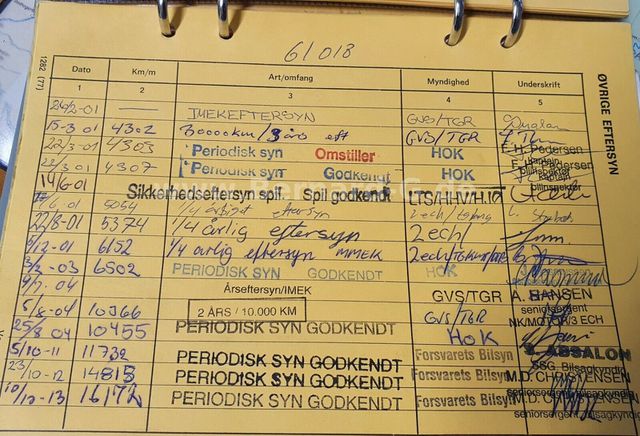 61018
1282 (77)
ØVRIGE EFTERSYN
Dato Km/m Art/omfang Myndighed Underskrift
1 2 3 4 5
24/2-01 — IMEKEFTERSYN GVS/TGR
15-3 01 4302 30000km/3 års eft GVS/TGR
22/3-01 4303 Periodisk syn Omstiller HOK E. H. Pedersen
kaptein
22/3 01 4307 Periodisk syn Godkendt HOK Pedersen
bilinspektør
14/6-01 Sikkerhedseftersyn spif. Spil godkendt LTS/HHV/H.10 bilinspektør
6-01 5054 1/4 årligt eftersyn 2ech/
22/8-01 5374 1/4 årlig eftersyn 2ech/
9/12-01 6152 1/4 årlig eftersyn MMEK 2ech/
3/2-03 6502 PERIODISK SYN GODKENDT HOK
9/1-04 Årseftersyn/IMEK GVS/TGR A. HANSEN
seniorsergent
5/8-04 10366 2 ÅRS / 10.000 KM GVS/TGR NK/MOTOR/3 ECH
25/8 04 10455 PERIODISK SYN GODKENDT HOK ABSALON
5/10-11 11732 PERIODISK SYN GODKENDT Forsvarets Bilsyn SSG. Bilsagkyndig
23/10-12 14813 PERIODISK SYN GODKENDT Forsvarets Bilsyn M.D. CHRISTENSEN
seniorsergent, Bilsagkyndig
10/12-13 16172 PERIODISK SYN GODKENDT Forsvarets Bilsyn M.D. CHRISTENSEN
seniorsergent, Bilsagkyndig